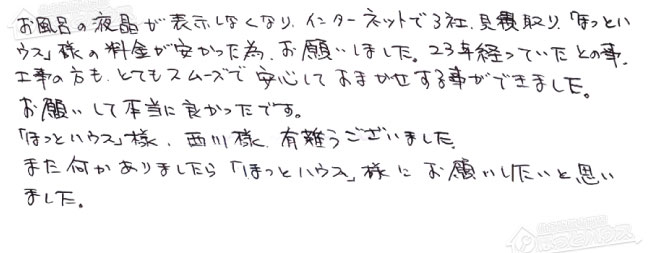 お風呂の液晶が表示しなくなり、インターネットで3社、見積取り、「ほっとハ
ウス」様の料金が安かった為、お願いしました。23年経っていたとの事、
工事の方も、とてもスムーズで安心しておまかせする事ができました。
お願いして本当に良かったです。
「ほっとハウス」様、西川様、有難うございました。
また何かありましたら「ほっとハウス」様にお願いしたいと思い
ました。